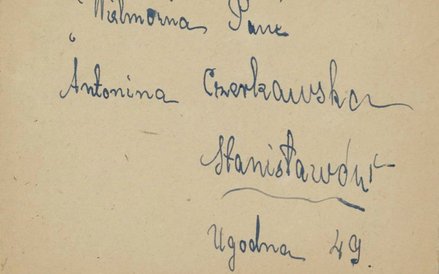 Wielmożna Pani
Antonina Czerkawska
Stanisławów
Ugodna 49.